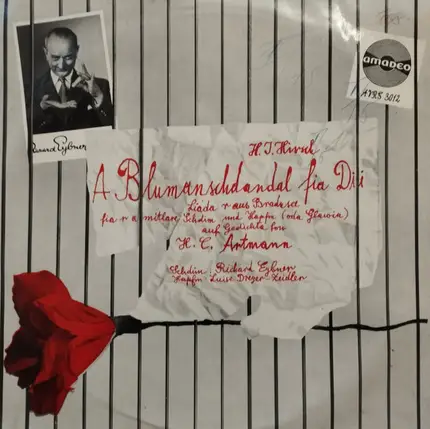 Richard Eybner
amadeo
AVRS 3012
H. J. Hirsch
A Blumanschdandal fia Dii
Liada r aus Bradnsee
fia r a mittlare Schdim und Hapfn (oda Glawia)
auf Gedichta fon
H. C. Artmann
Schdim: Richard Eybner
Hapfn: Luise Dreyer-Zeidler